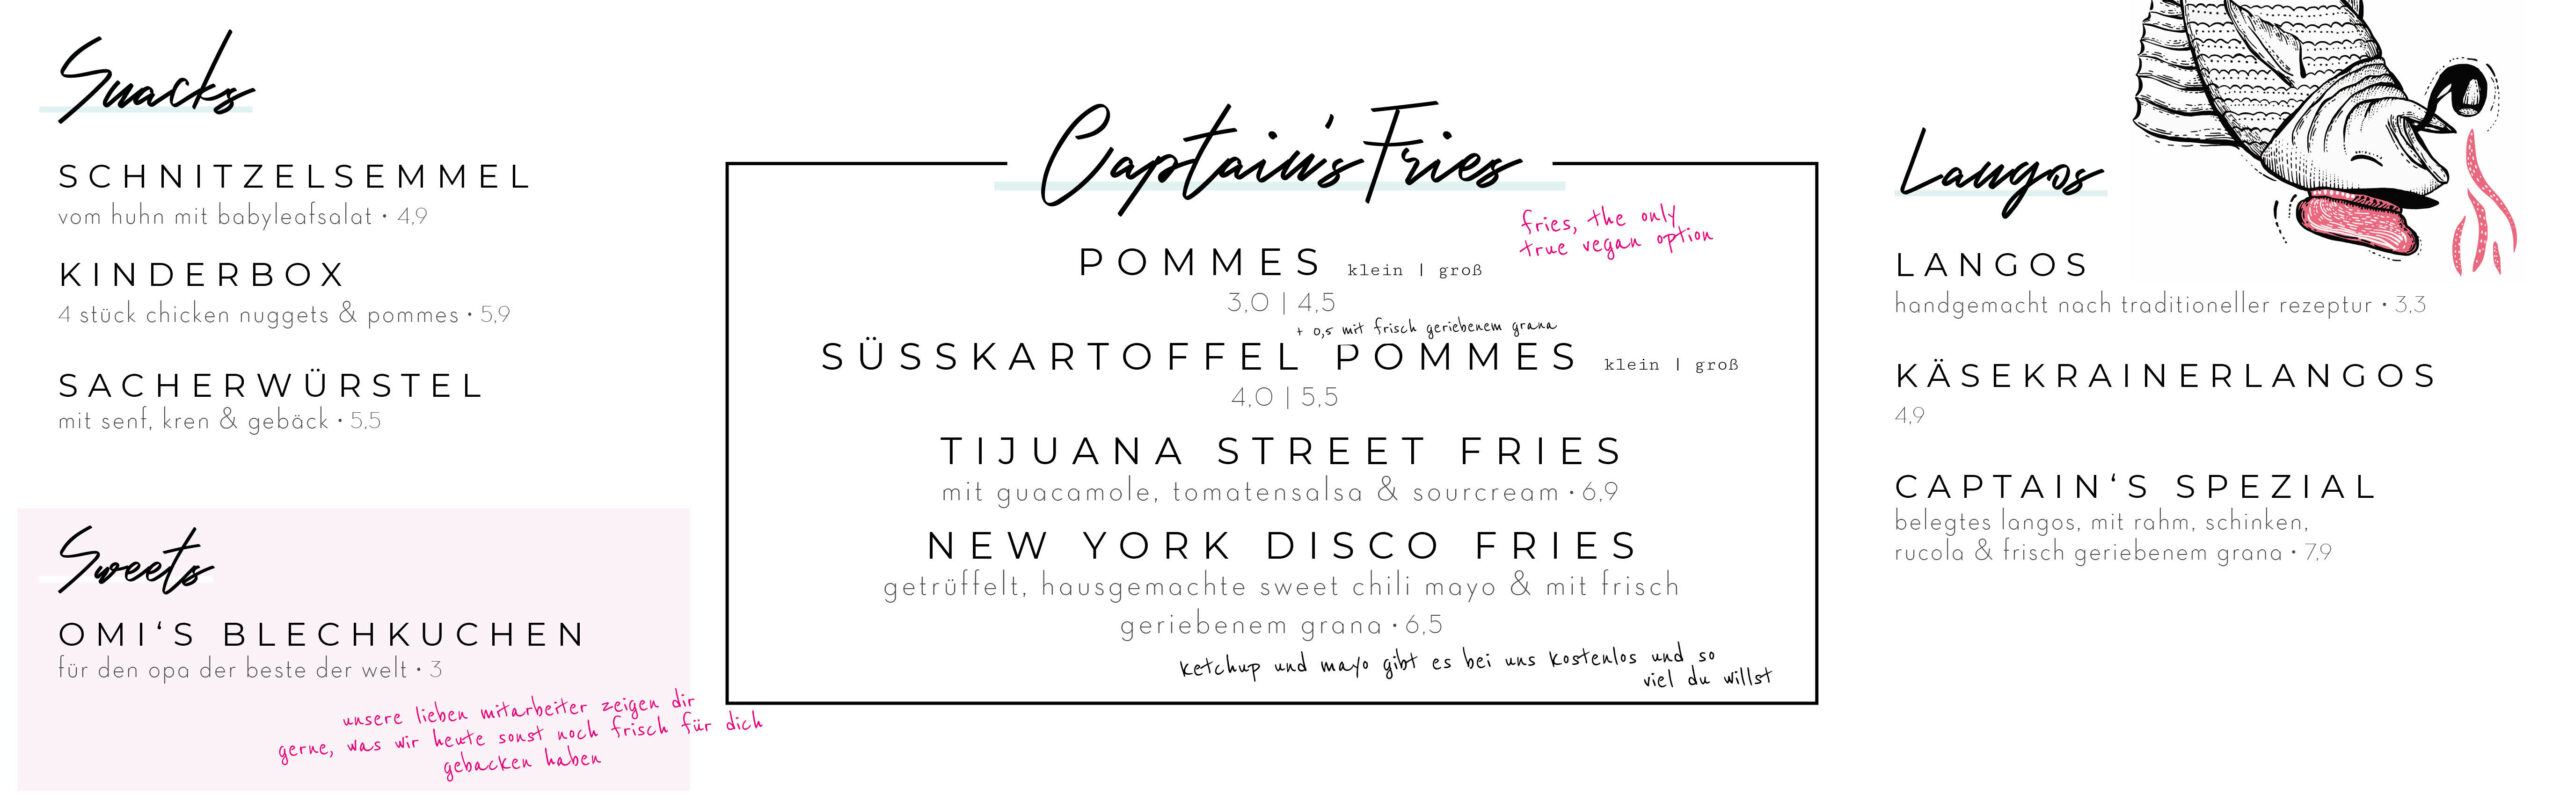 Snacks
SCHNITZELSEMMEL
vom huhn mit babyleafsalat • 4,9
KINDERBOX
4 stück chicken nuggets & pommes • 5,9
SACHERWÜRSTEL
mit senf, kren & gebäck • 5,5
Sweets
OMI‘S BLECHKUCHEN
für den opa der beste der welt • 3
unsere lieben mitarbeiter zeigen dir
gerne, was wir heute sonst noch frisch für dich
gebacken haben
Captain's Fries
fries, the only
true vegan option
POMMES klein | groß
3,0 | 4,5
+ 0,5 mit frisch geriebenem grana
SÜSSKARTOFFEL POMMES klein | groß
4,0 | 5,5
TIJUANA STREET FRIES
mit guacamole, tomatensalsa & sourcream • 6,9
NEW YORK DISCO FRIES
getrüffelt, hausgemachte sweet chili mayo & mit frisch
geriebenem grana • 6,5
ketchup und mayo gibt es bei uns kostenlos und so
viel du willst
Langos
LANGOS
handgemacht nach traditioneller rezeptur • 3,3
KÄSEKRAINERLANGOS
4,9
CAPTAIN‘S SPEZIAL
belegtes langos, mit rahm, schinken,
rucola & frisch geriebenem grana • 7,9